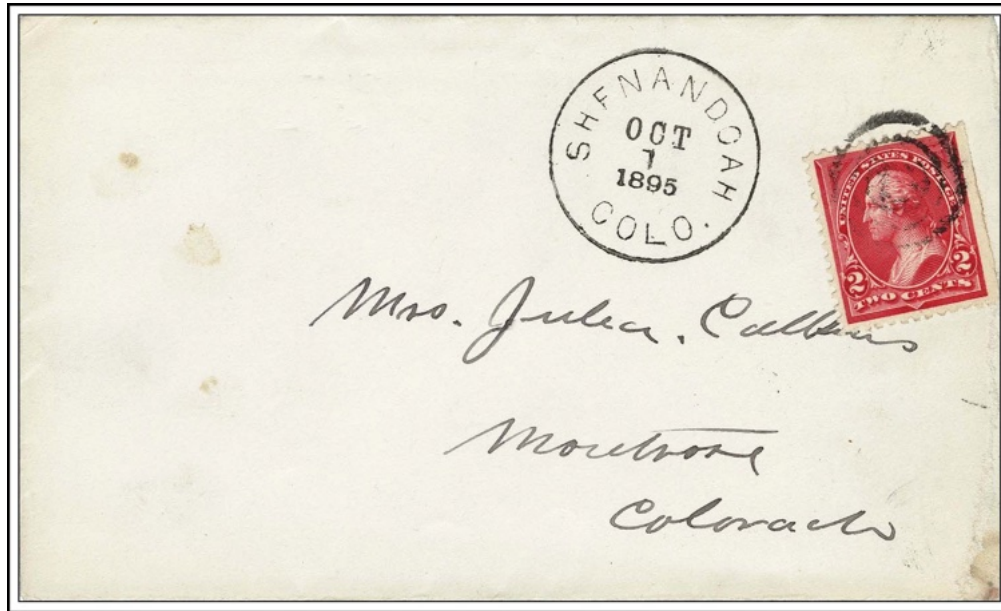 SHENANDOAH
OCT
1
1895
COLO.
UNITED STATES POSTAGE
2 2
TWO CENTS
Mrs. Julia. Calkins
Montrose
Colorado